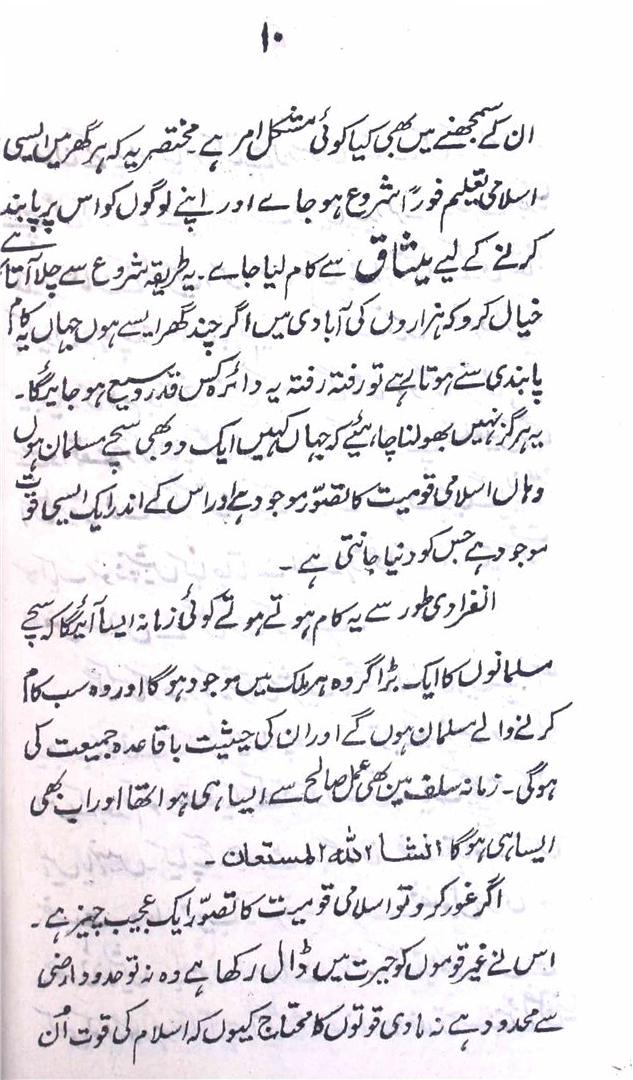 ۱۰
ان کے سمجھنے میں بھی کیا کوئی مشکل امر ہے۔ مختصر یہ کہ ہر گھر میں ایسی
اسلامی تعلیم فوراً شروع ہو جاے اور اپنے لوگوں کو اس پر پابند
کرنے کے لیے میثاق سے کام لیا جاے۔ یہ طریقہ شروع سے چلا آتا ہے
خیال کرو کہ ہزاروں کی آبادی میں اگر چند گھر ایسے ہوں جہاں یہ کام
پابندی سے ہوتا ہے تو رفتہ رفتہ یہ دائرہ کس قدر وسیع ہو جائیگا۔
یہ ہرگز نہیں بھولنا چاہئیے کہ جہاں کہیں ایک دو بھی سچے مسلمان ہوں
وہاں اسلامی قومیت کا تصوّر موجود ہے اور اس کے اندر ایک ایسی قوت
موجود ہے جس کو دنیا جانتی ہے۔
انفرادی طور سے یہ کام ہوتے ہوتے کوئی زمانہ ایسا آئیگا کہ سچے
مسلمانوں کا ایک بڑا گروہ ہر ملک میں موجود ہوگا اور وہ سب کام
کرنے والے مسلمان ہوں گے اور ان کی حیثیت باقاعدہ جمیعت کی
ہوگی۔ زمانہ سلف میں بھی عمل صالح سے ایسا ہی ہوا تھا اور اب بھی
ایسا ہی ہوگا انشا اللہ المستعان۔
اگر غور کرو تو اسلامی قومیت کا تصوّر ایک عجیب چیز ہے۔
اس نے غیر قوموں کو حیرت میں ڈال رکھا ہے وہ نہ تو حدود ارضی
سے محدود ہے نہ مادی قوتوں کا محتاج کیوں کہ اسلام کی قوت اُن